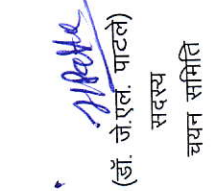 (डॉ. जे.एल. पाटले)
सदस्य
चयन समिति